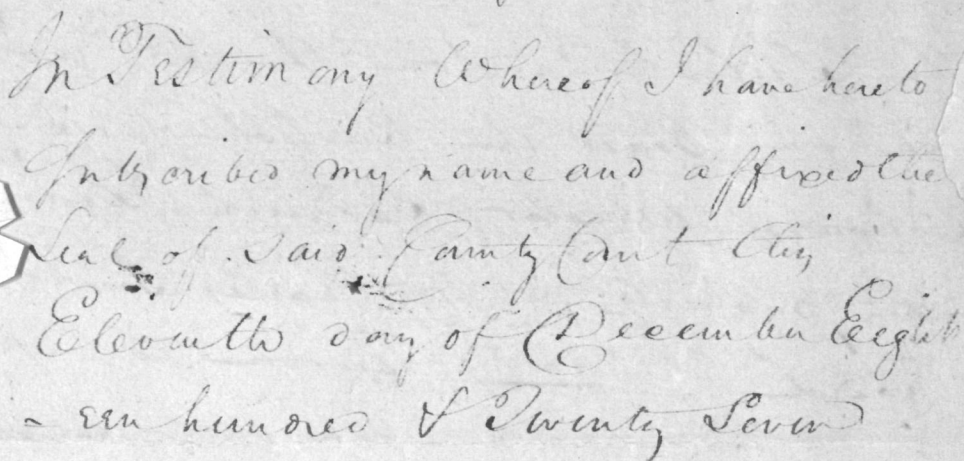 In Testimony Whereof I have hereto
Subscribed my name and affixed the
Seal of said County Court this
Eleventh day of December Eight
-een hundred & Twenty Seven